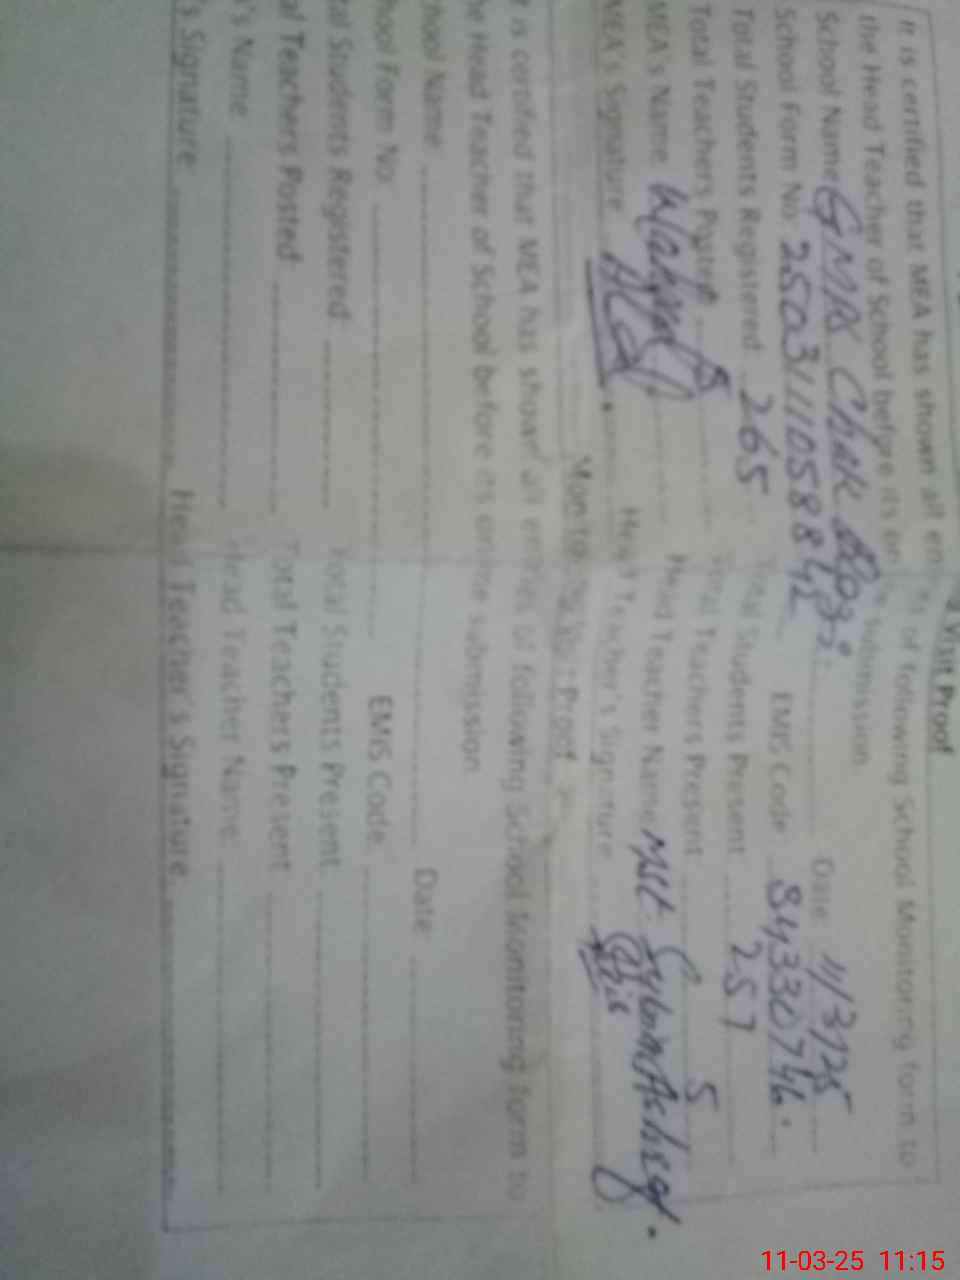 Visit Proof
It is certified that MEA has shown all entries of following School Monitoring form to
the Head Teacher of School before its online submission.
School Name GMPS Chak Date 11/3/25
School Form No. 2503111058842 EMIS Code 84330746.
Total Students Registered 265 Total Students Present 257
Total Teachers Posted 5 Total Teachers Present 5
MEA's Name Head Teacher Name Mst.
MEA's Signature Head Teacher's Signature
Monitoring Visit Proof
It is certified that MEA has shown all entries of following School Monitoring form to
he Head Teacher of School before its online submission.
chool Name Date
hool Form No. EMIS Code
tal Students Registered Total Students Present
al Teachers Posted Total Teachers Present
's Name Head Teacher Name
's Signature Head Teacher's Signature
11-03-25 11:15